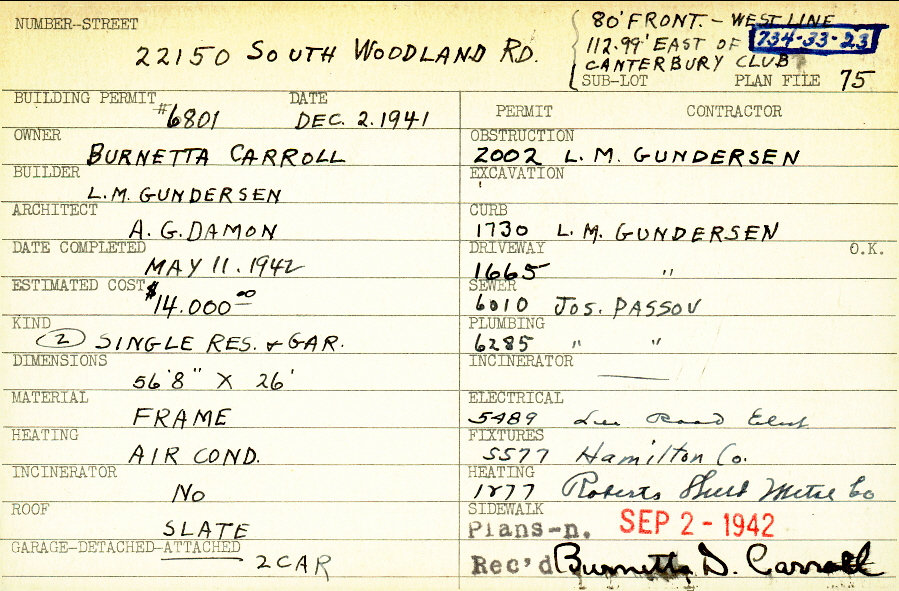 NUMBER--STREET
22150 SOUTH WOODLAND RD.
80' FRONT. - WEST LINE
112.99' EAST OF 734-33-23
CANTERBURY CLUB
SUB-LOT PLAN FILE 75
BUILDING PERMIT #6801 DATE DEC. 2. 1941
OWNER
BURNETTA CARROLL
BUILDER
L.M. GUNDERSEN
ARCHITECT
A.G. DAMON
DATE COMPLETED
MAY 11. 1942
ESTIMATED COST $14.000.00
KIND
2 SINGLE RES. & GAR.
DIMENSIONS
56'8" X 26'
MATERIAL
FRAME
HEATING
AIR COND.
INCINERATOR
NO
ROOF
SLATE
GARAGE-DETACHED-ATTACHED
2 CAR
PERMIT CONTRACTOR
OBSTRUCTION
2002 L. M. GUNDERSEN
EXCAVATION
CURB
1730 L. M. GUNDERSEN
DRIVEWAY O.K.
1665 "
SEWER
6010 JOS. PASSOV
PLUMBING
6285 " "
INCINERATOR
ELECTRICAL
5489 Lee Road Elect
FIXTURES
5577 Hamilton Co.
HEATING
1877 Roberts Sheet Metal Co
SIDEWALK
Plans-n. SEP 2 - 1942
Rec'd Burnetta D. Carroll